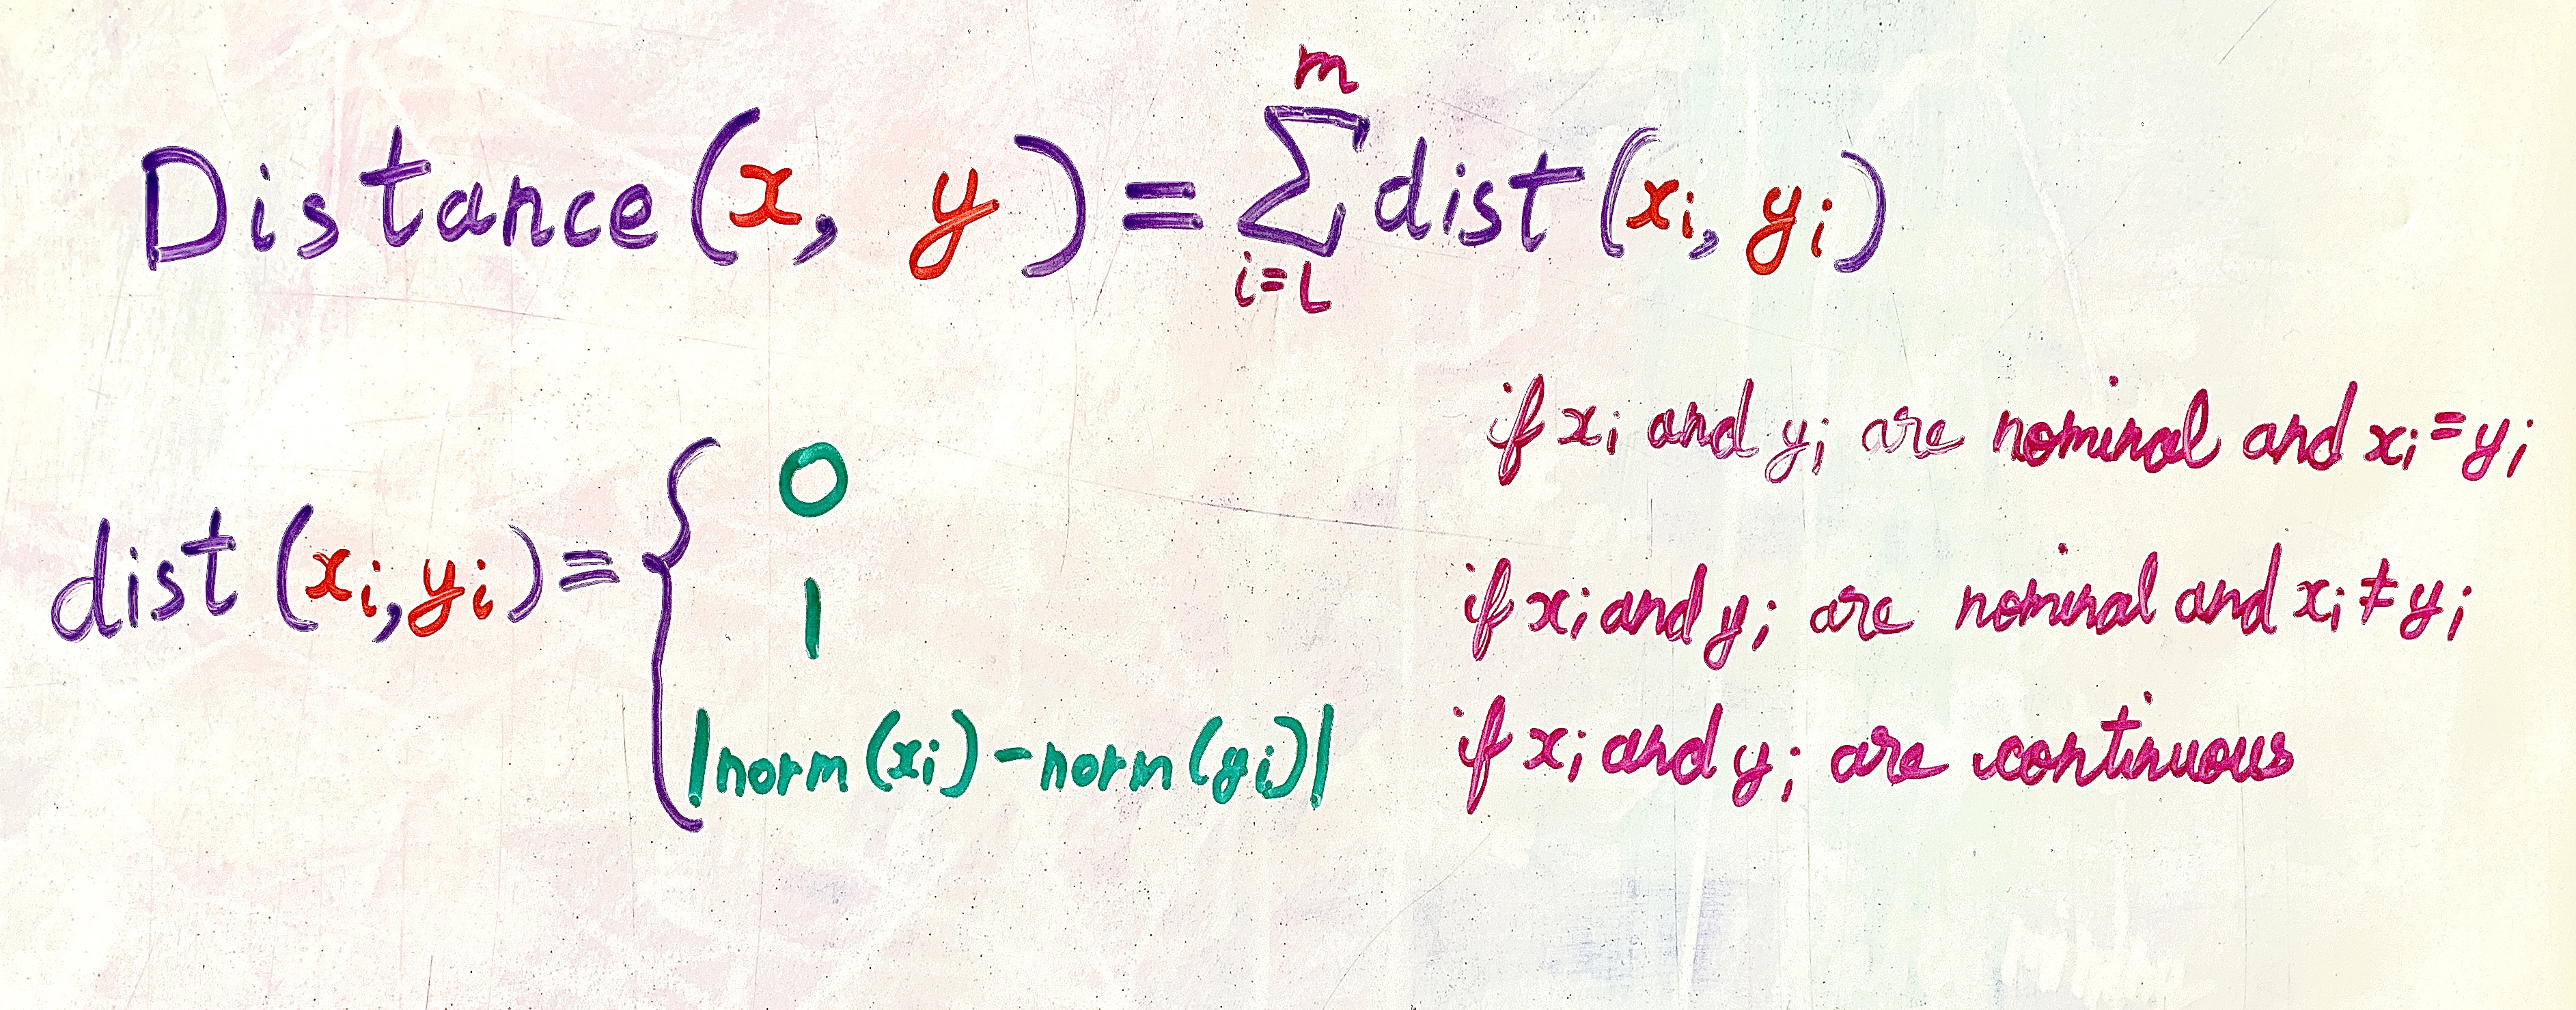 Distance(x, y) = ∑_{i=1}^{m} dist(x_i, y_i)
dist(x_i, y_i) = {
0 if x_i and y_i are nominal and x_i = y_i
1 if x_i and y_i are nominal and x_i ≠ y_i
|norm(x_i) - norm(y_i)| if x_i and y_i are continuous